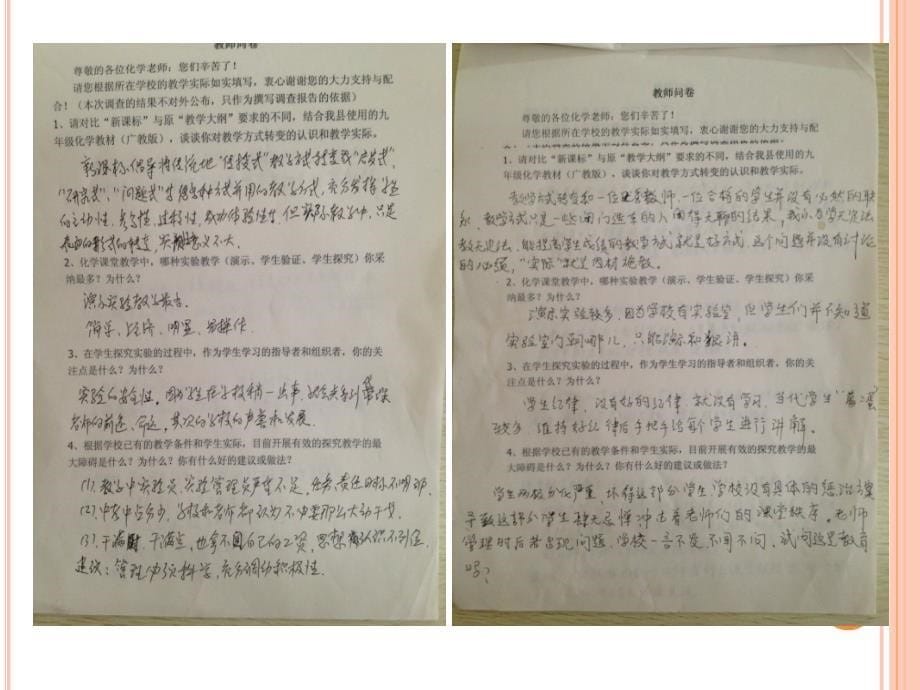 教师问卷
尊敬的各位化学老师：您们辛苦了！
请您根据所在学校的教学实际如实填写，衷心谢谢您的大力支持与配
合！（本次调查的结果不对外公布，只作为撰写调查报告的依据）
1、请对比“新课标”与原“教学大纲”要求的不同，结合我县使用的九
年级化学教材（广教版），谈谈你对教学方式转变的认识和教学实际。
新课标倡导将传统地“传授式”教学方式转变成“启发式”、
“研究式”、“问题式”等多种方式并用的教学方式，充分发挥学生
的主动性，过程性，成功体验性等 但实际教学中，只是
表面的形式的转变，实际意义不大。
2、化学课堂教学中，哪种实验教学（演示、学生验证、学生探究）你采
纳最多？为什么？
演示实验教学最多。
简单、经济、明显、易操作。
3、在学生探究实验的过程中，作为学生学习的指导者和组织者，你的关
注点是什么？为什么？
实验的安全性，因为学生在学校稍一出事，就会关系到
老师的前途、命运，其次的学校的声誉和发展。
4、根据学校已有的教学条件和学生实际，目前开展有效的探究教学的最
大障碍是什么？为什么？你有什么好的建议或做法？
(1)、教学中实验员、实验管理员严重不足，任务、责任目标不明确，
(2)、中考中占分少，学校和老师都认为不必要那么大动干戈。
(3)、干满时、干满点，也拿不回自己的工资，思想认识不到位。
建议：管理必须科学，充分调动积极性。
教师问卷
尊敬的各位化学老师：您们辛苦了！
请您根据所在学校的教学实际如实填写，衷心谢谢您的大力支持与配
1、请对比“新课标”与原“教学大纲”要求的不同，结合我县使用的九
年级化学教材（广教版），谈谈你对教学方式转变的认识和教学实际。
教学方式转变和一位优秀教师，一位合格的学生并没有必然的联
系，教学方式只是一些闭门造车的人闲得无聊的结果，我认为学无定法
教无定法，能提高学生成绩的教学方式就是好方式 这个问题并没有讨论
的必须，“实际”就是因材施教。
2、化学课堂教学中，哪种实验教学（演示、学生验证、学生探究）你采
纳最多？为什么？
演示实验较多，因为学校有实验室，但学生们并不知道
实验室门朝哪儿，只能演示和想讲。
3、在学生探究实验的过程中，作为学生学习的指导者和组织者，你的关
注点是什么？为什么？
学生纪律，没有好的纪律，就没有学习，当代学生
较多，维持好纪律后手把手给每个学生进行讲解。
4、根据学校已有的教学条件和学生实际，目前开展有效的探究教学的最
大障碍是什么？为什么？你有什么好的建议或做法？
学生两极分化严重，坏得这部分学生，学校没有具体的惩治方案
导致这部分学生肆无忌惮冲击着老师们的课堂秩序。老师
管理时后若出现问题，学校一言不发，不闻不问，试问这是教育
吗？